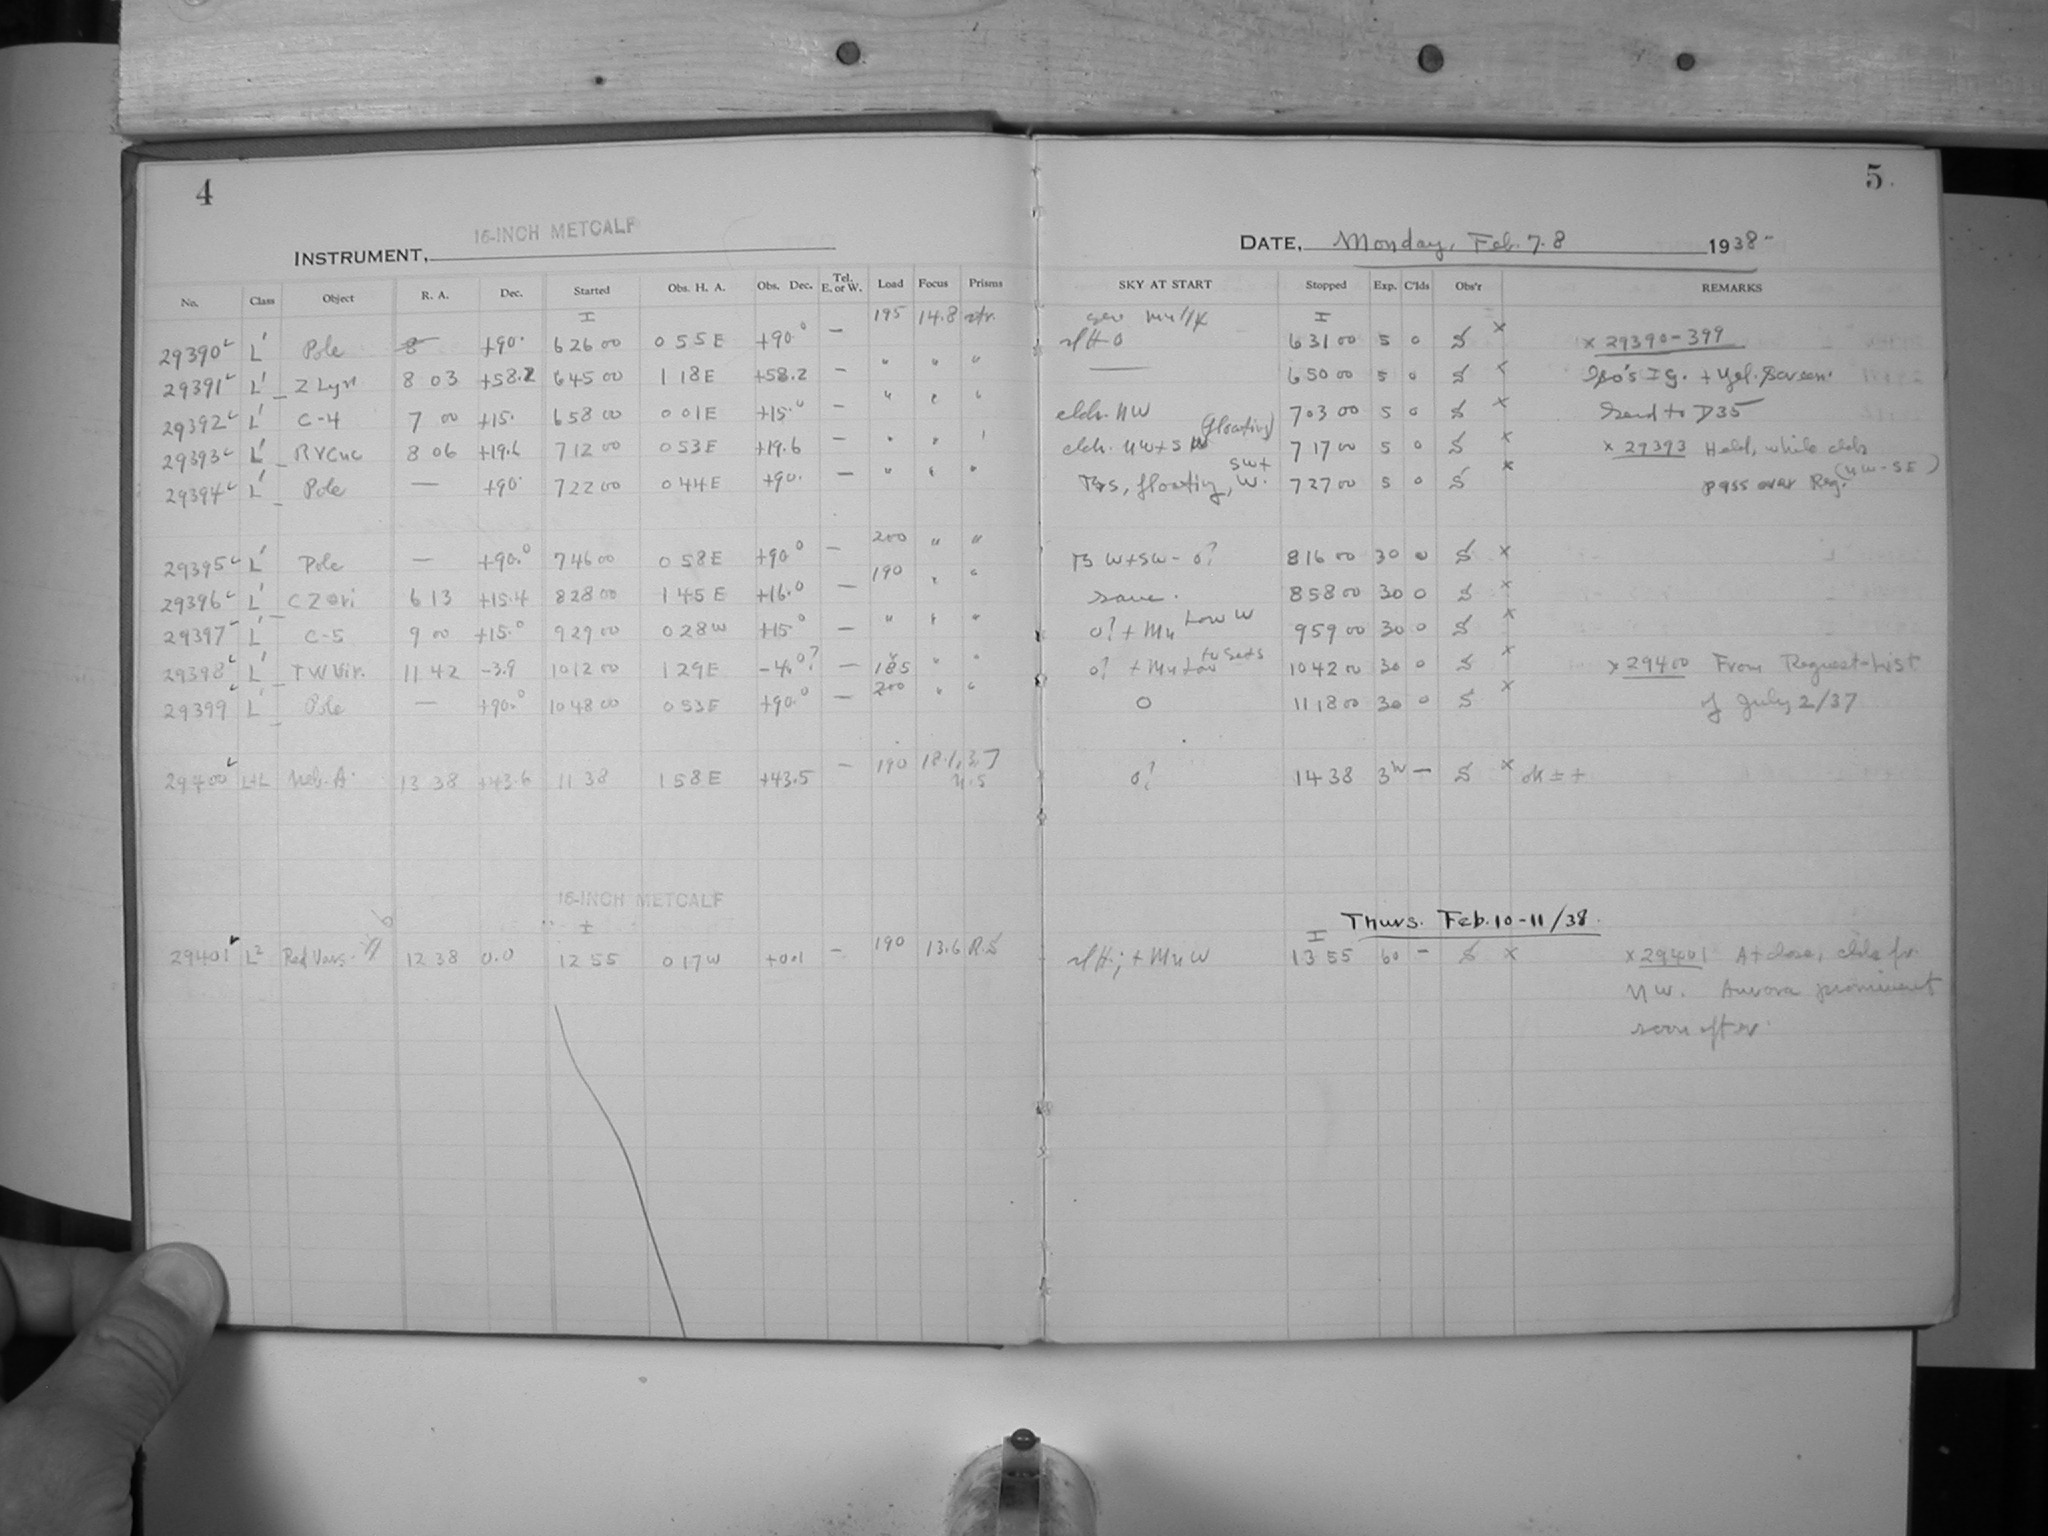 4
INSTRUMENT, 16-INCH METCALF
No. Class Object R. A. Dec. Started Obs. H. A. Obs. Dec. Tel. E. or W. Load Focus Prisms
29390 L' Pole +90. 6 26 00 0 55 E +90° — 195 14.8
29391 L' Z Lyn 8 03 +58.2 6 45 00 1 18 E +58.2 — " " "
29392 L' C-4 7 00 +15. 6 58 00 0 01 E +15.° — " " "
29393 L' RVCnc 8 06 +19.6 7 12 00 0 53 E +19.6 — " " "
29394 L' Pole — +90. 7 22 00 0 44 E +90. — " " "
29395 L' Pole — +90.° 7 46 00 0 58 E +90° — 200 " "
29396 L' CZ Ori 6 13 +15.4 8 28 00 1 45 E +16.0 — 190 " "
29397 L' C-5 9 00 +15.° 9 29 00 0 28 W +15° — " " "
29398 L' TW Vir. 11 42 -3.9 10 12 00 1 29 E -4.0? — 185 " "
29399 L' Pole — +90.° 10 48 00 0 53 E +90.° — 200 " "
29400 L+L Neb. A. 13 38 +43.6 11 38 1 58 E +43.5 — 190
16-INCH METCALF
29401 L² Red Vars. 12 38 0.0 12 55 0 17 W +0.1 — 190 13.6 R.S
5.
DATE, Monday, Feb. 7-8 1938-
SKY AT START Stopped Exp. C'lds Obs'r REMARKS
6 31 00 5 0 S x x 29390-399
— 6 50 00 5 0 S x Iso's I G. + Yel. Screen.
clds. NW 7 03 00 5 0 S x Send to D35
clds. NW + SW (floating) 7 17 00 5 0 S x x 29393 Held, while clds
floating, SW + W. 7 27 00 5 0 S x pass over Reg. (NW-SE)
W + SW - 0? 8 16 00 30 0 S x
same. 8 58 00 30 0 S x
0? + Mn Low W 9 59 00 30 0 S x
0? + Mn Low to sets 10 42 00 30 0 S x x 29400 From Request-List
0 11 18 00 30 0 S x of July 2/37
0? 14 38 3h — S x ok ± +
Thurs. Feb. 10-11/38.
+ Mn W 13 55 60 — S x x 29401 At close, clds fr.
NW. Aurora prominent
soon after.